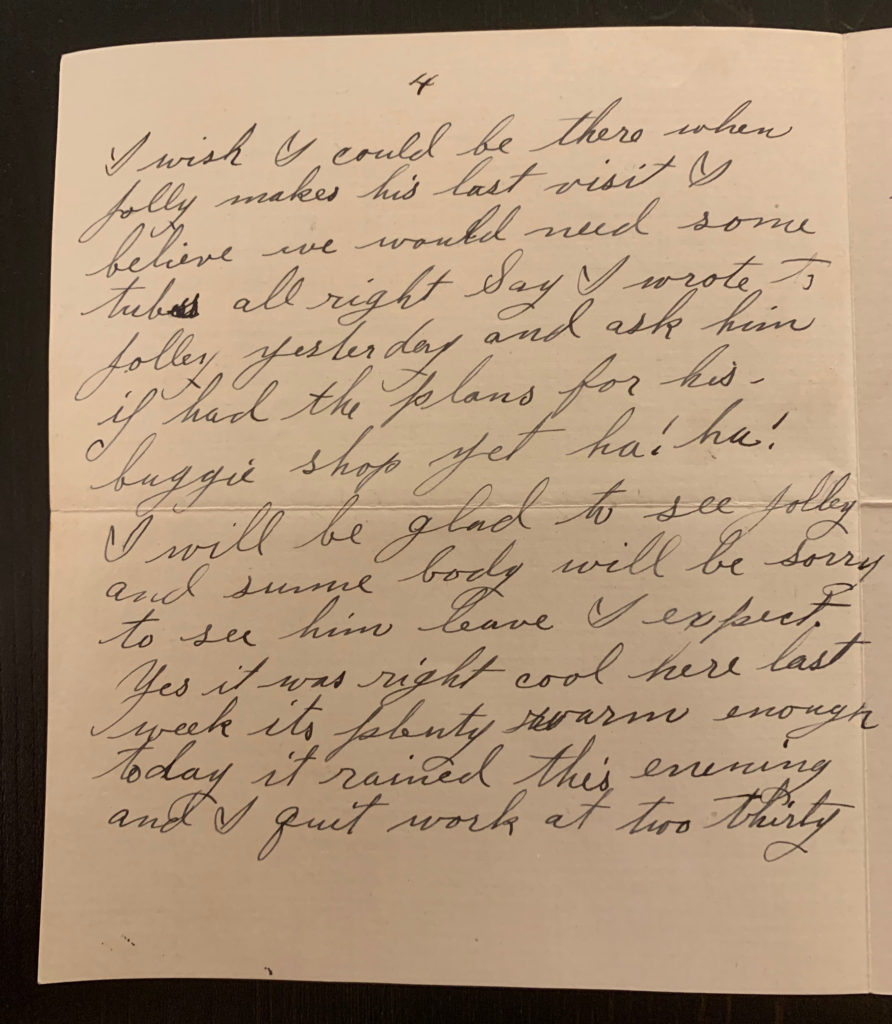 4
I wish I could be there when
Jolly makes his last visit I
believe we would need some
tubs all right Say I wrote to
Jolley yesterday and ask him
if had the plans for his-
buggie shop yet ha! ha!
I will be glad to see Jolley
and sume body will be sorry
to see him leave I expect.
Yes it was right cool here last
week its plenty warm enough
today it rained this enening
and I quit work at two thirty